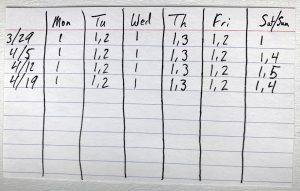 Mon Tu Wed Th Fri Sat/Sun
3/29 1 1,2 1 1,3 1,2 1
4/5 1 1,2 1 1,3 1,2 1,4
4/12 1 1,2 1 1,3 1,2 1,5
4/19 1 1,2 1 1,3 1,2 1,4